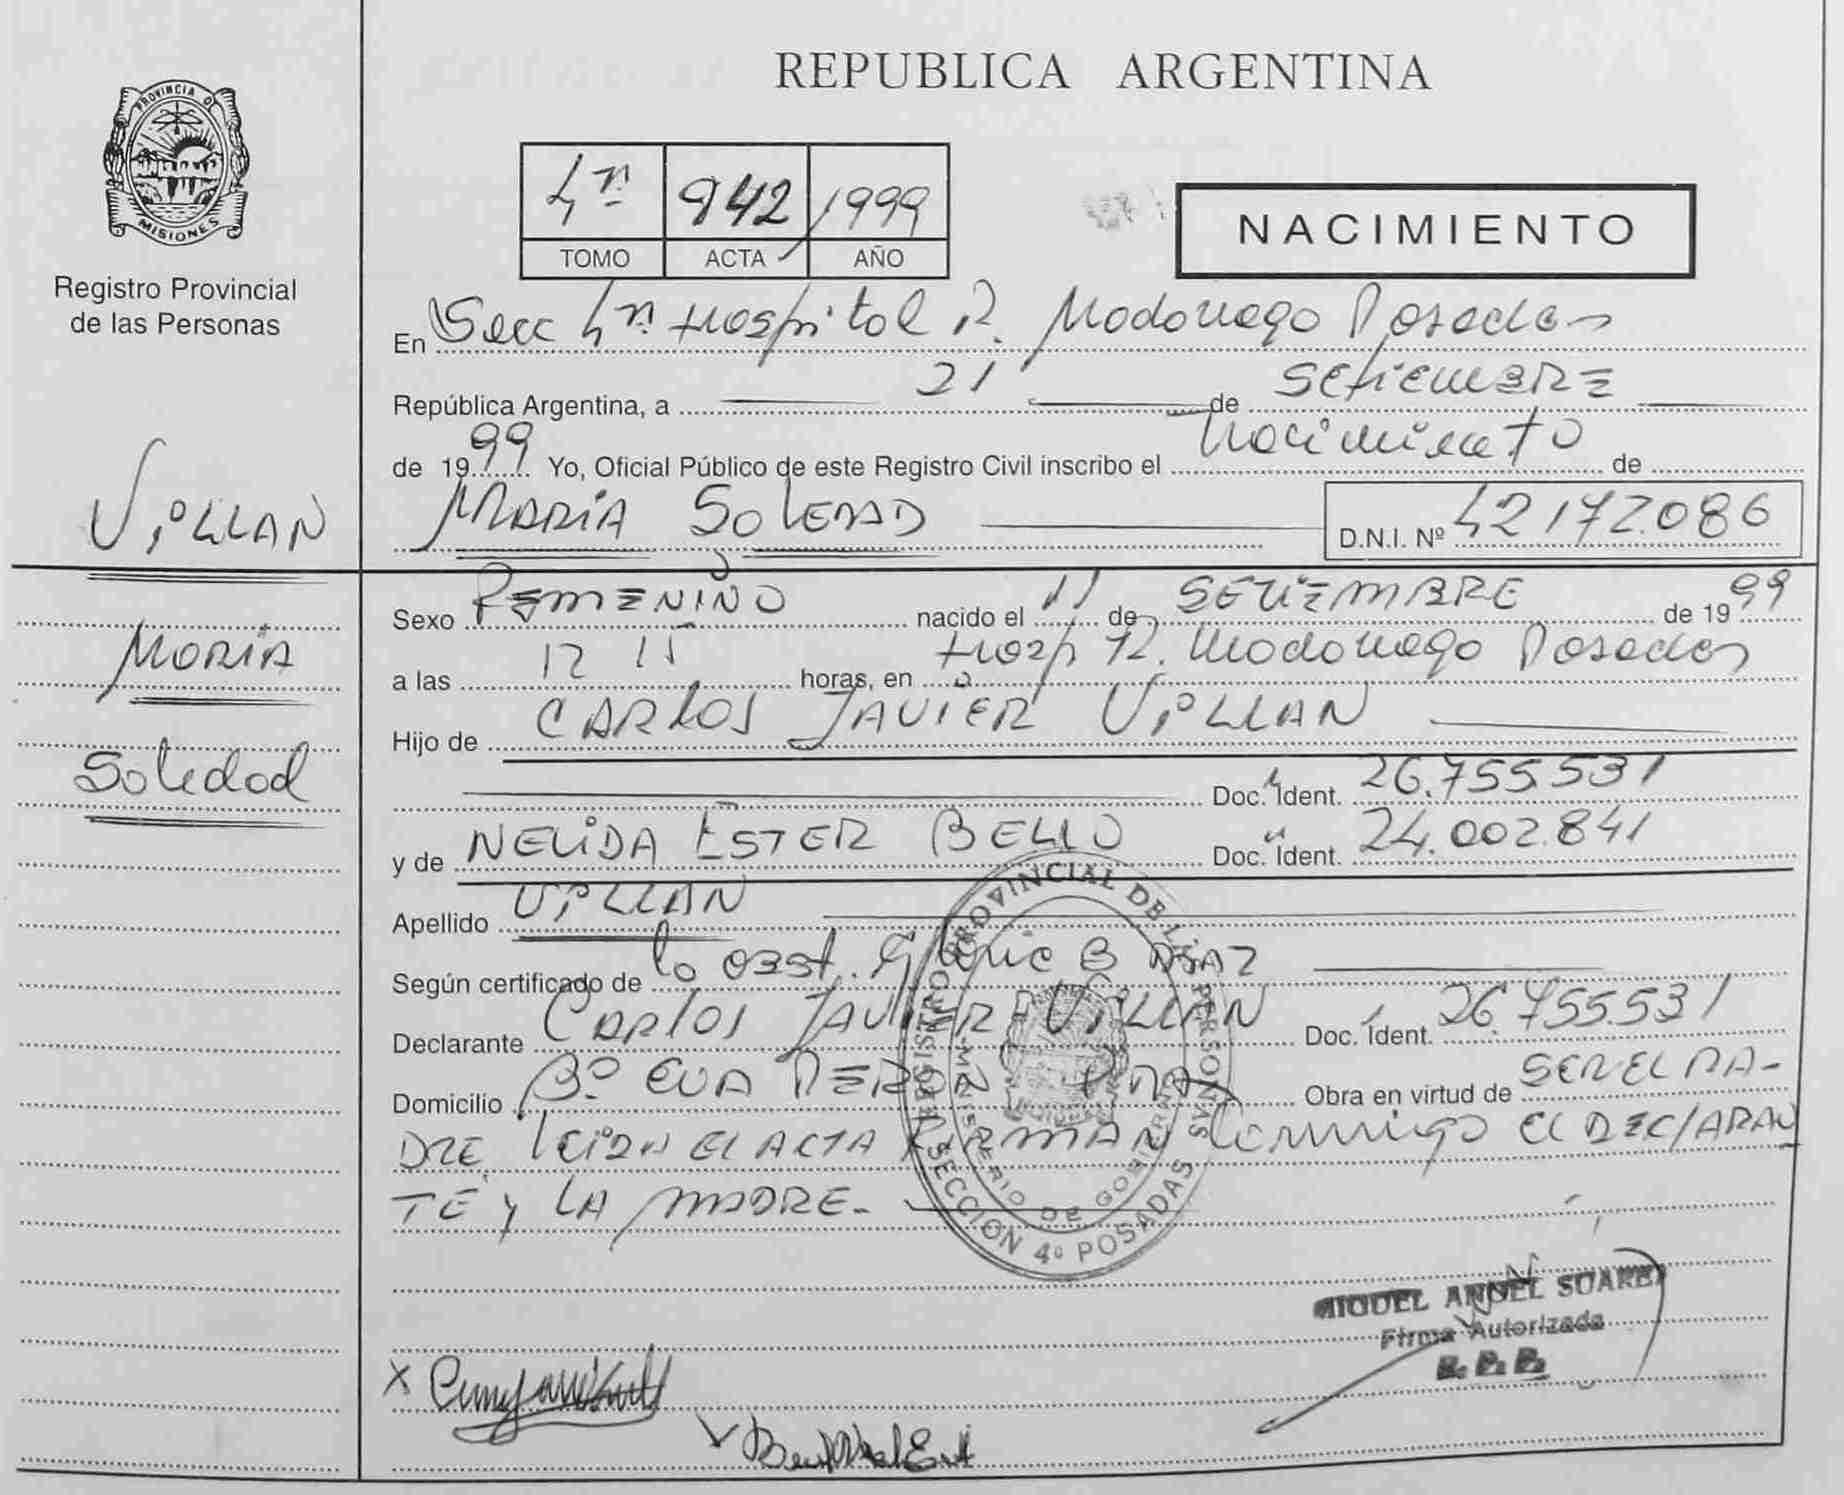 REPUBLICA ARGENTINA
PROVINCIA D
MISIONES
Registro Provincial
de las Personas
4ta 942 1999
TOMO ACTA AÑO
NACIMIENTO
En Secc 4ta Hospital R. Madariaga Posadas
República Argentina, a 21 de SETIEMBRE
de 1999 Yo, Oficial Público de este Registro Civil inscribo el nacimiento de
MARIA SOLEDAD D.N.I. Nº 42172.086
VILLAN
MARIA
Soledad
Sexo FEMENINO nacido el 11 de SETIEMBRE de 1999
a las 12 15 horas, en Hosp R. Madariaga Posadas
Hijo de CARLOS JAVIER VILLAN
Doc. Ident. 26.755.531
y de NELIDA ESTER BELLO Doc. Ident. 24.002.841
Apellido VILLAN
Según certificado de la obst. B DIAZ
Declarante CARLOS JAVIER VILLAN Doc. Ident. 26.755.531
Domicilio Bº EVA PERON Obra en virtud de SER EL PA-
DRE LEIDA EL ACTA FIRMAN conmigo el DECLARAN
TE y LA MADRE.
REGISTRO PROVINCIAL DE LAS PERSONAS
MINISTERIO DE GOBIERNO
SECCION 4º POSADAS
MIGUEL ANGEL SUAREZ
Firma Autorizada
R. P. P.
X